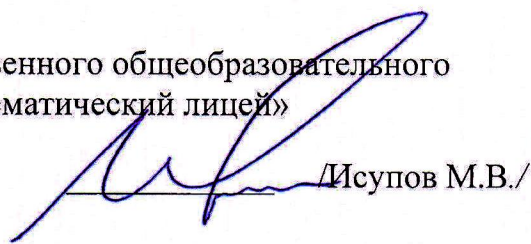 венного общеобразовательного
ематический лицей»
/Исупов М.В./